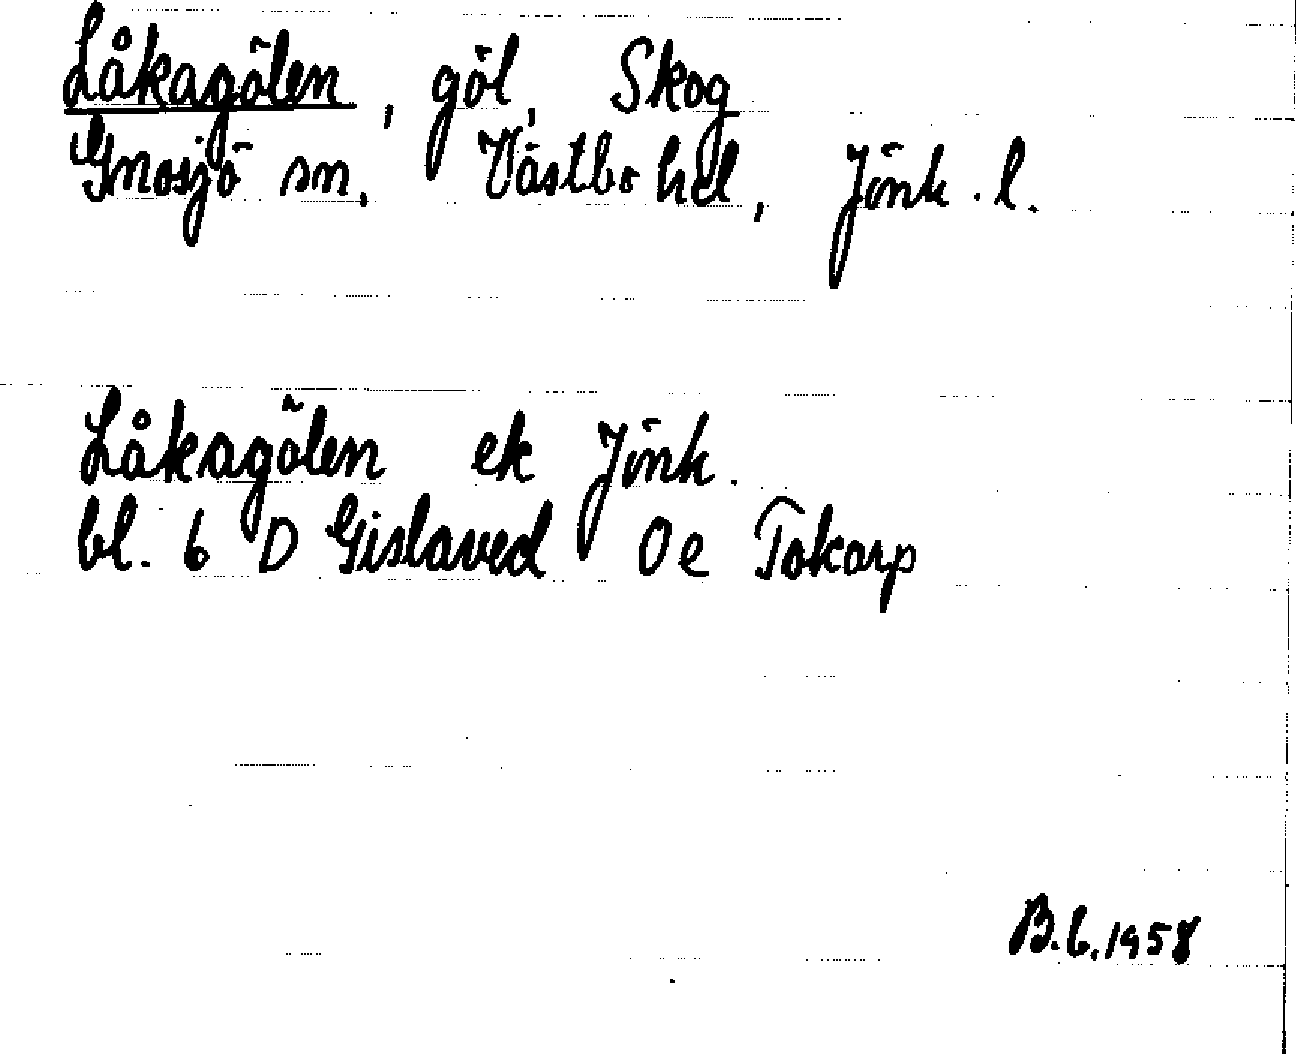 Låkagölen, göl, Skog
Gnosjö sn. Västbo hd, Jönk. l.
Låkagölen ek Jönk.
bl. 6 D Gislaved 0e Tokarp
B.L.1958